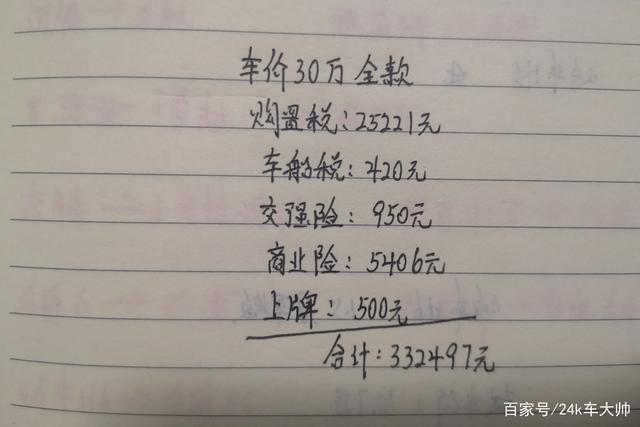 车价30万全款
购置税:25221元
车船税:420元
交强险:950元
商业险:5406元
上牌:500元
合计:332497元
百家号/24k车大帅